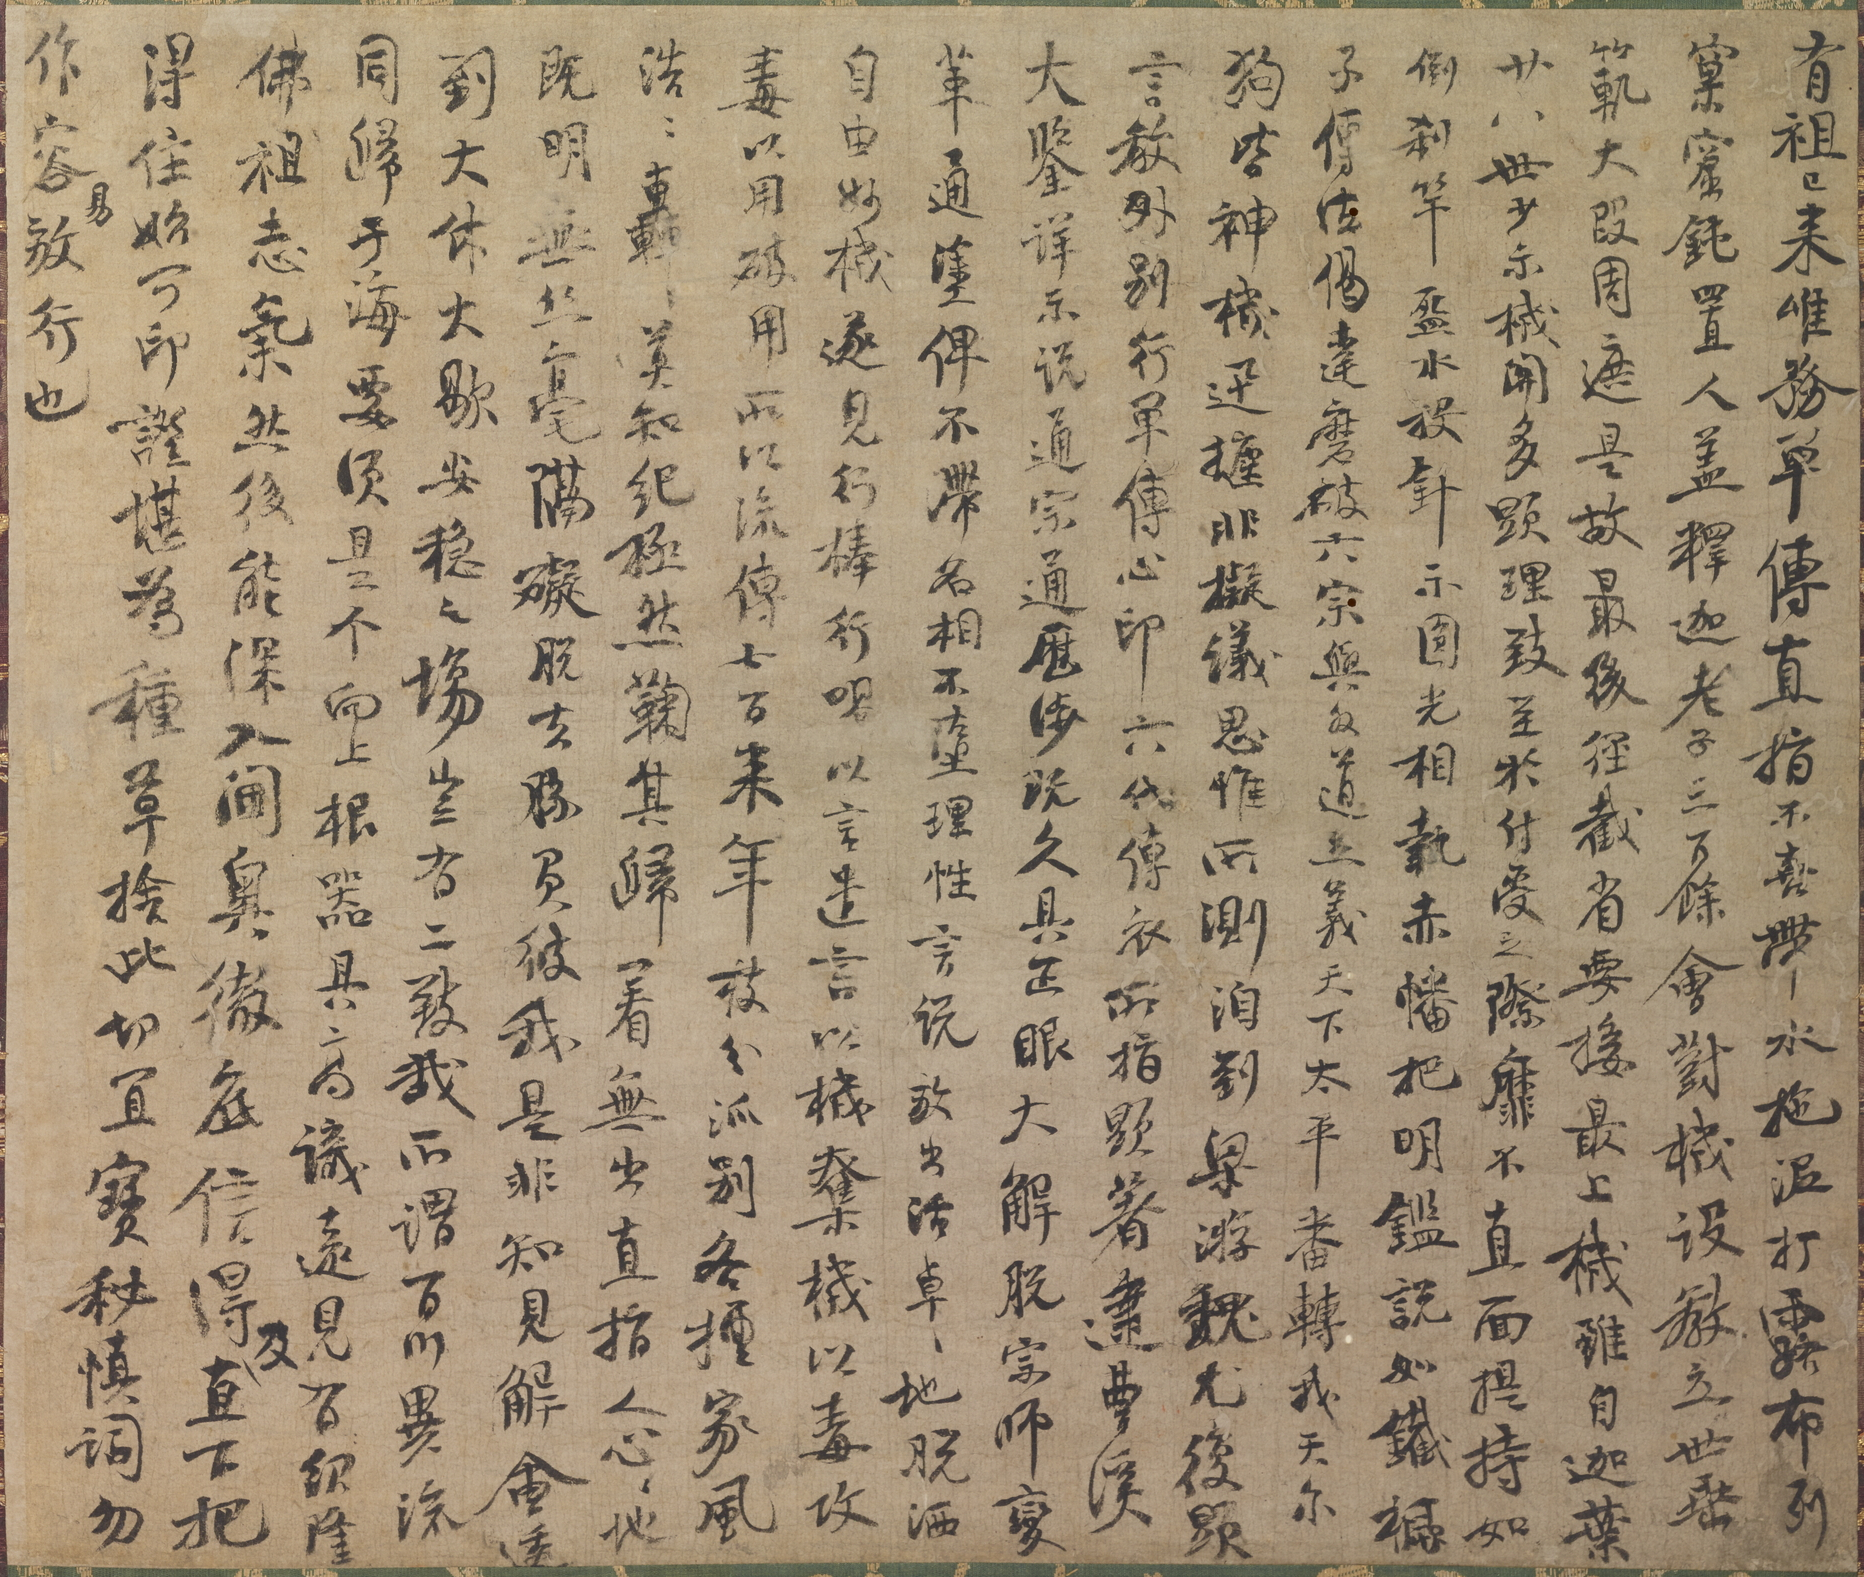 有祖已来唯務單傳直指不喜帶水拖泥打露布列
窠窟鈍置人盖釋迦老子三百餘會對機设教立世垂
範大段周遮是故最後徑截省要接最上機雖自迦葉
廿八世少示機関多顕理致至於付受之際靡不直面提持如
倒刹竿盋水投針示圓光相執赤幡把明鑑說如鐵橛
子傳法偈達磨破六宗與外道立義天下太平番轉我天尔
狗皆神機迅捷非擬議思惟所測洎到梁游魏尤復顕
言教外别行单傳心印六代傳衣所指顕著逮曹溪
大鑒詳示说通宗通歷涉既久具正眼大解脱宗师變
革通塗俾不滯名相不墮理性言说放出活卓〻地脱洒
自由妙機遂見行棒行喝以言遣言以機奪機以毒攻
毒以用破用所以流傳七百来年枝分派别各擅家風
浩〻轟〻莫知紀極然鞠其歸着無出直指人心〻地
既明無丝毫隔礙脱去勝負彼我是非知見解會透
到大休大歇安穏之場豈有二致哉所謂百川異流
同歸于海要須是个向上根器具高識遠見有紹隆
佛祖志氣然後能深入閫奥徹底信得及直下把
得住始可印證堪為種草捨此切宜寳秘慎詞勿
作容易放行也